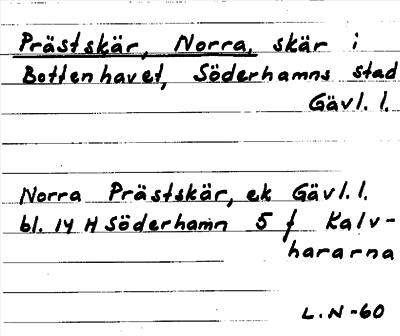 Prästskär, Norra, skär i
Bottenhavet, Söderhamns stad
Gävl. l.
Norra Prästskär, ek Gävl. l.
bl. 14 H Söderhamn 5 f Kalv-
hararna
L. N -60